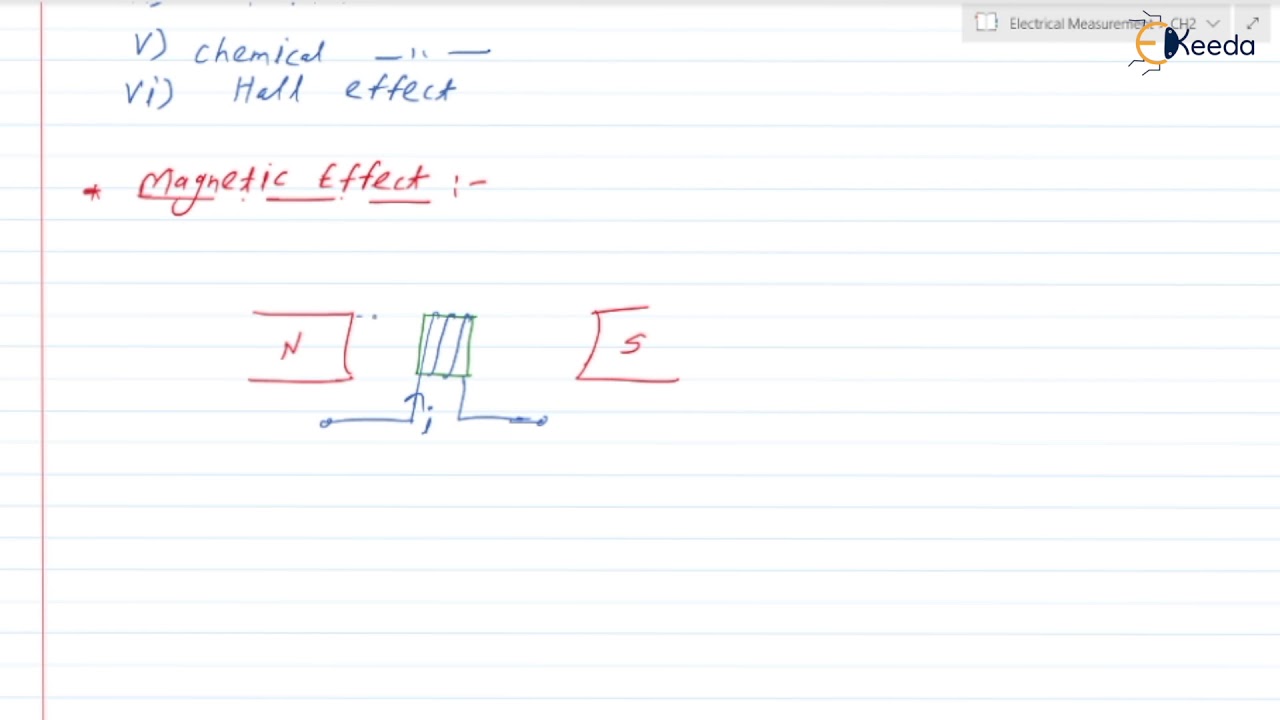 Electrical Measurement - CH2
EKeeda
v) chemical —"—
vi) Hall effect
* Magnetic Effect :-
N
S
i